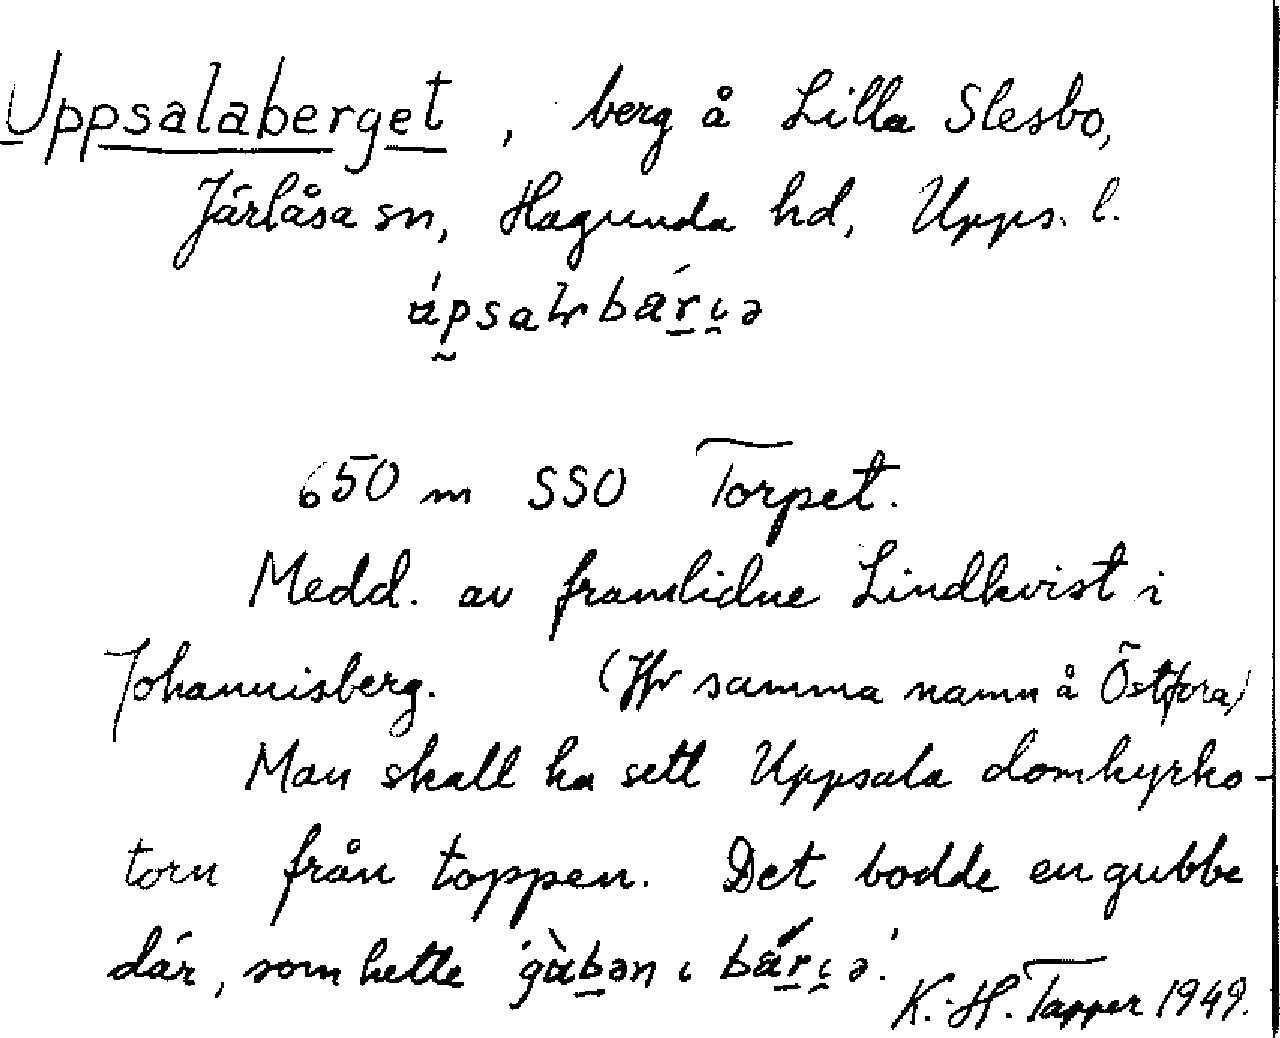 Uppsalaberget, berg å Lilla Slesbo,
Järlåsa sn, Hagunda hd, Upps. l.
650 m SSO Torpet.
Medd. av framlidne Lindkvist i
Johannisberg. (Jfr samma namn å Östfora)
Man skall ha sett Uppsala domkyrko-
torn från toppen. Det bodde en gubbe
där, som hette
K.-H. Tapper 1949.